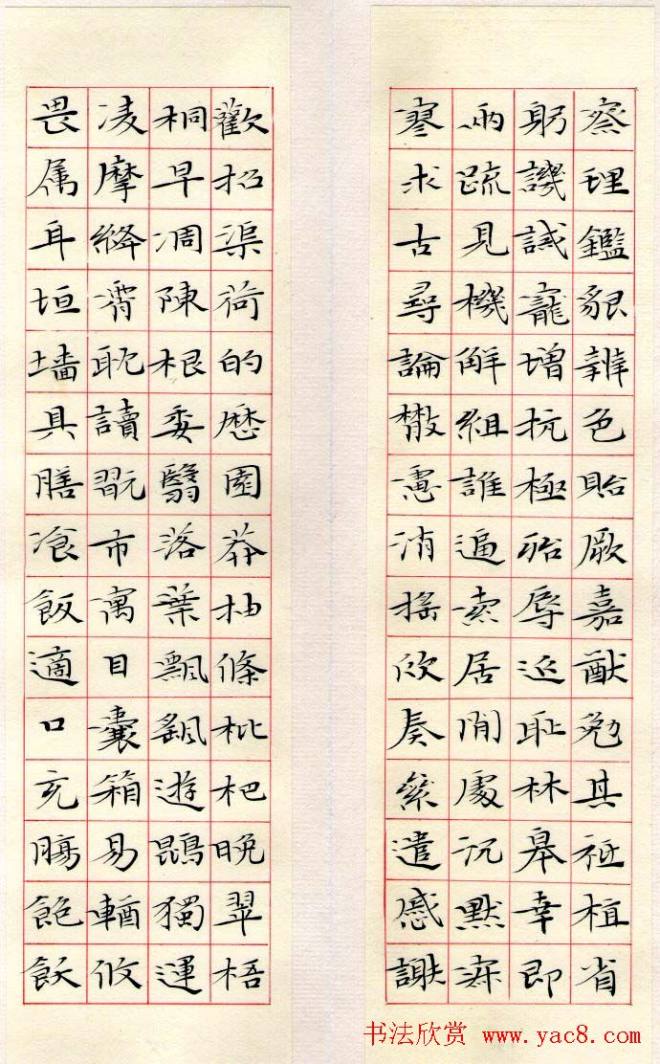 察理鑑貌辨色貽厥嘉猷勉其祗植省
躬譏誡寵增抗極殆辱近耻林皋幸即
兩疏見機解組誰逼索居閒處沉默寂
寥求古尋論散慮消搖欣奏累遣慼謝
歡招渠荷的歷園莽抽條枇杷晚翠梧
桐早凋陳根委翳落葉飄颻遊鵾獨運
凌摩絳霄耽讀翫市寓目囊箱易輶攸
畏属耳垣墙具膳飡飯適口充腸飽飫
书法欣赏 www.yac8.com